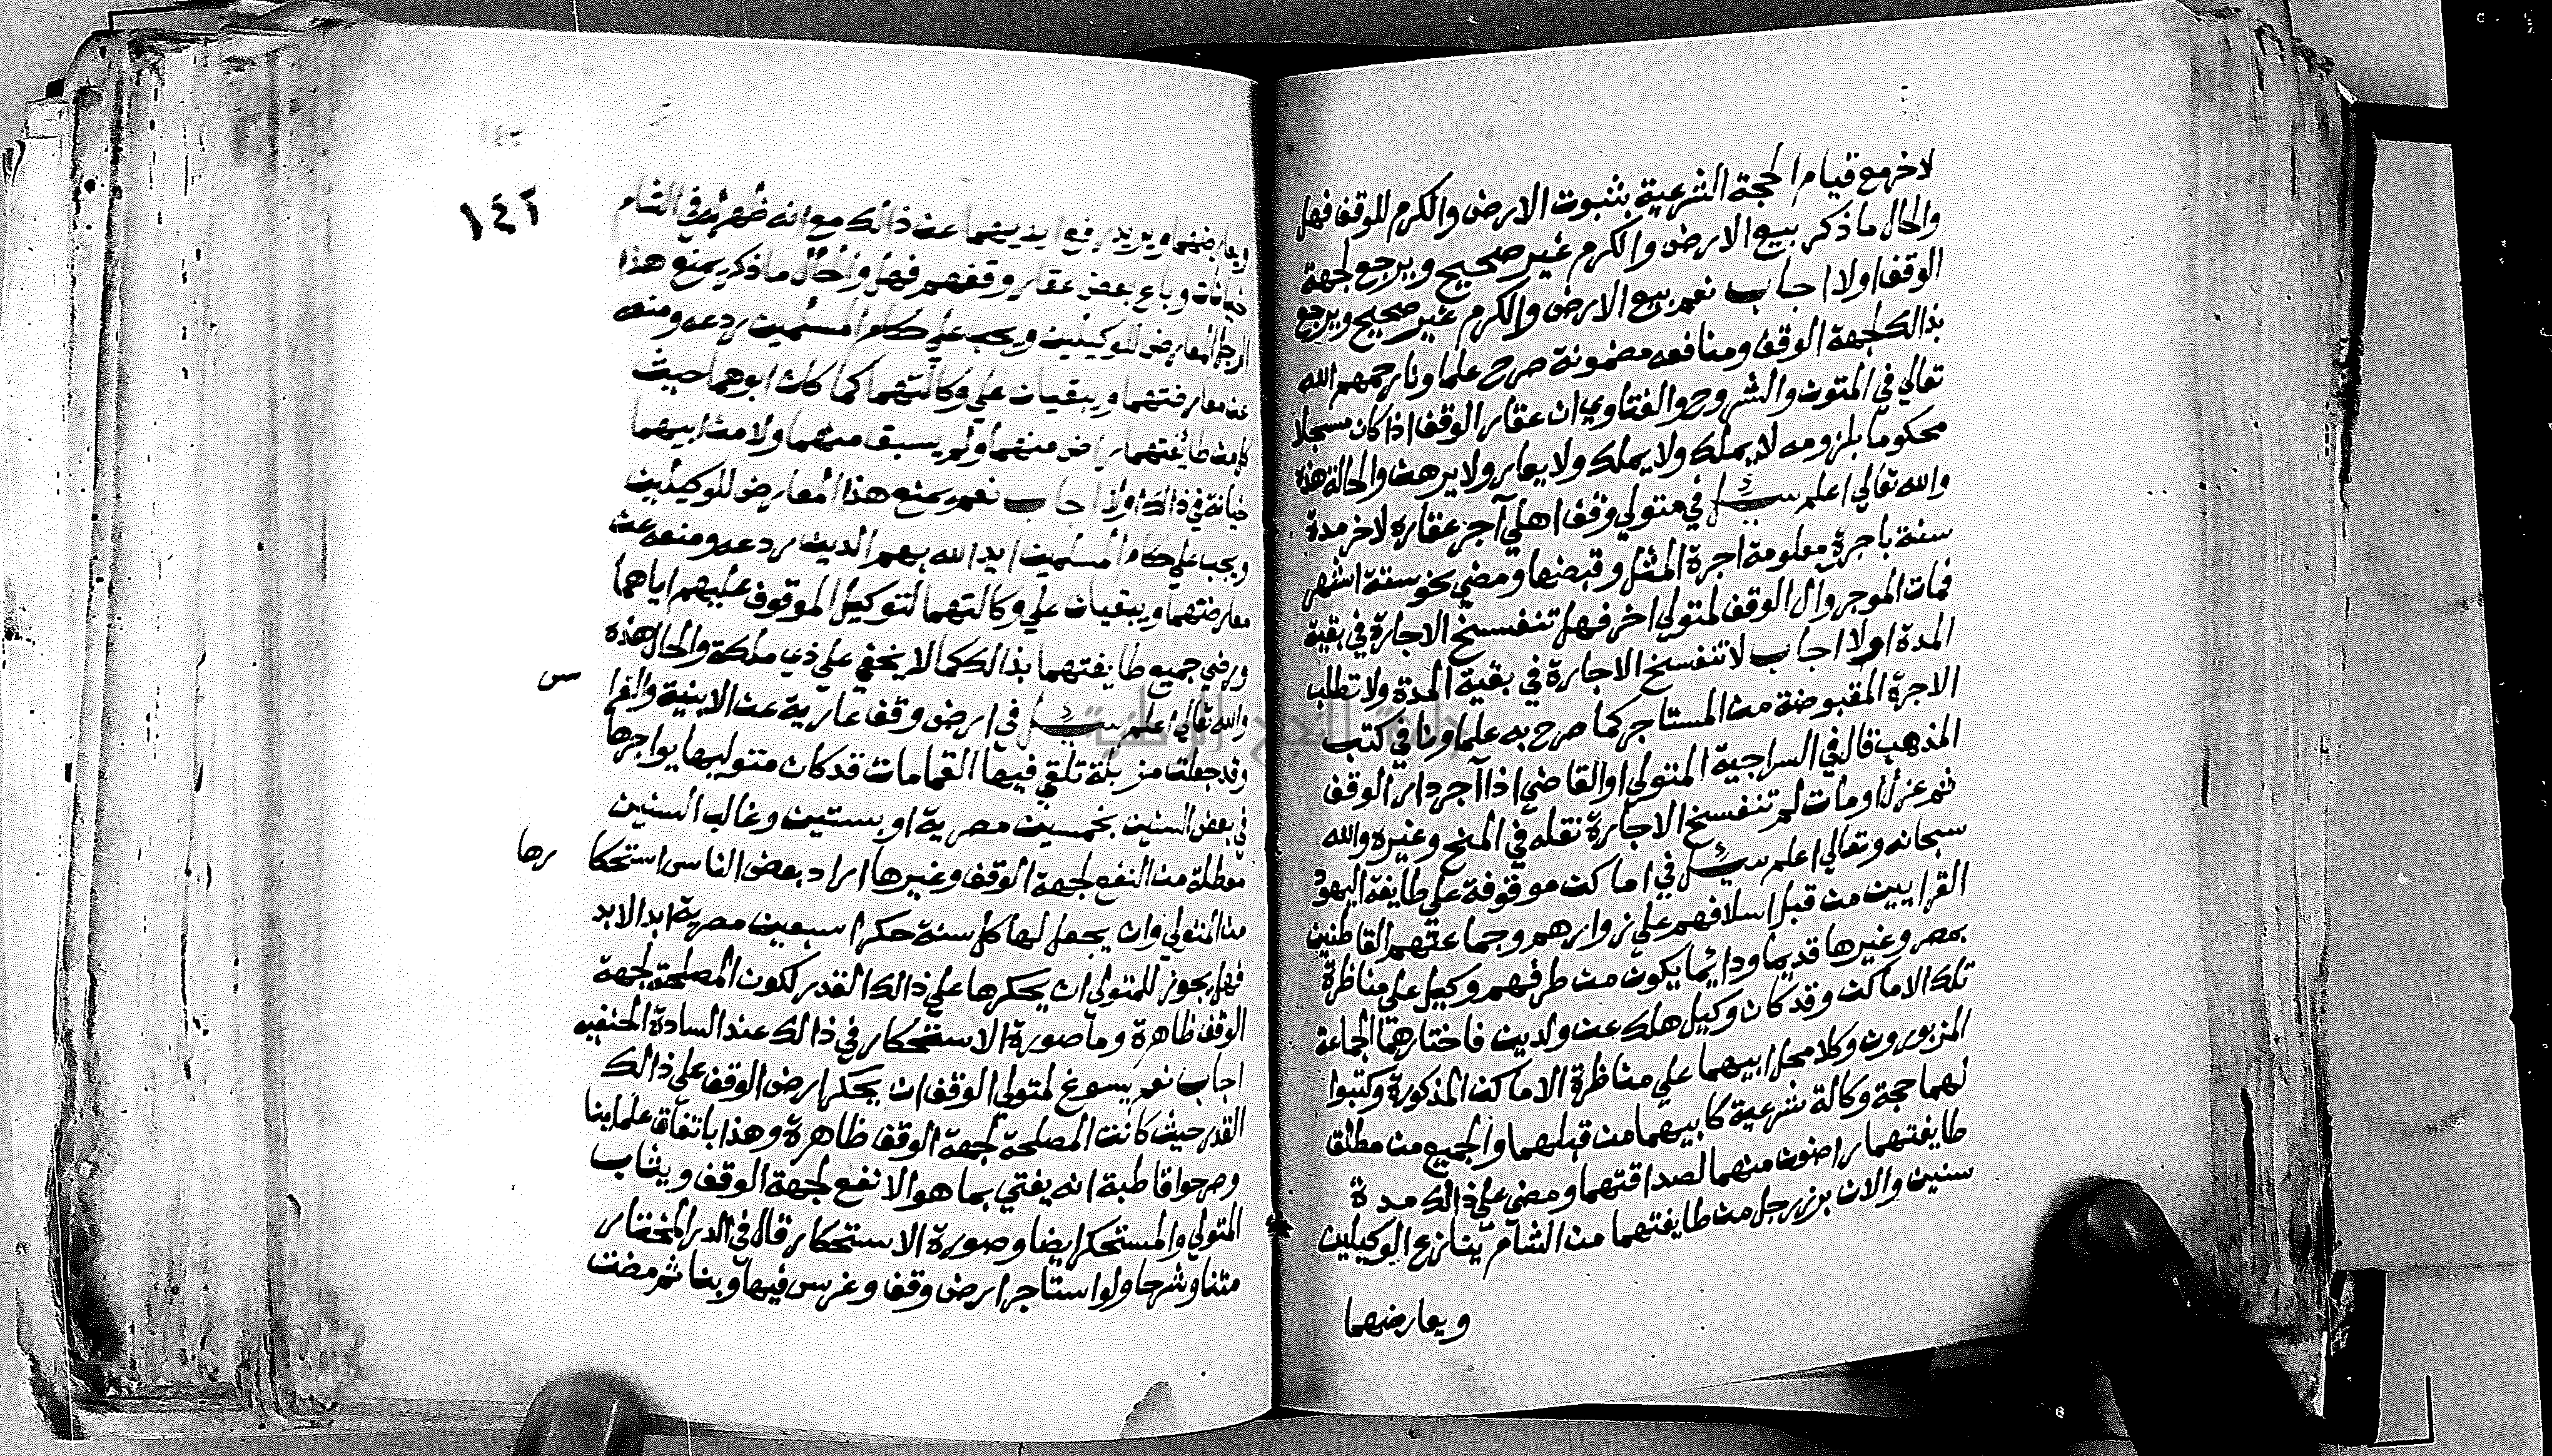 لاخر مع قيام الحجة الشرعية بثبوت الارض والكرم للوقف فهل
والحال ما ذكر بيع الارض والكرم غير صحيح ويرجع لجهة
الوقف اولا اجاب نعم بيع الارض والكرم غير صحيح ويرجع
بذالك لجهة الوقف ومنافعه مضمونة صرح علماونا رحمهم الله
تعالي في المتون والشروح والفتاوي ان عقار الوقف اذا كان مسجلا
محكوما بلزومه لا يملك ولا يملك ولا يعار ولا يرهن والحالة هذه
والله تعالي اعلم سيل في متولي وقف اهلي آجر عقاره لاخر مدة
سنة باجرة معلومة اجرة المثل وقبضها ومضي نحو ستة اشهر
فمات الموجر وال الوقف لمتولي اخر فهل تنفسخ الاجارة في بقية
المدة اولا اجاب لا تنفسخ الاجارة في بقية المدة ولا تطلب
الاجرة المقبوضة من المستاجر كما صرح به علماونا في كتب
المذهب قال في السراجية المتولي او القاضي اذا آجر دار الوقف
ثم عزل او مات لم تنفسخ الاجارة نقله في المنح وغيره والله
سبحانه وتعالي اعلم سيل في اماكن موقوفة علي طايفة اليهود
القرايين من قبل اسلافهم علي زوارهم وجماعتهم القاطنين
بمصر وغيرها قديما ودائما يكون من طرفهم وكيل علي مناظرة
تلك الاماكن وقد كان وكيل هلك عن ولدين فاختارهما الجماعة
المزبورون وكلا محل ابيهما علي مناظرة الاماكن المذكورة وكتبوا
لهما حجة وكالة شرعية كابيهما من قبلهما والجميع من مطلق
طايفتهما راضون منهما لصداقتهما ومضي علي ذالك مدة
سنين والان برز رجل من طايفتهما من الشام ينازع الوكيلين
ويعارضهما
١٤٢
ويعارضهما ويريد رفع ايديهما عن ذالك مع انه ظهر له في الشام
خيانات وباع بعض عقار وقفهم فهل والحال ما ذكر يمنع هذا
الرجل المعارض للوكيلين ويجب علي حكام المسلمين ردعه ومنعه
عن معارضتهما ويبقيان علي وكالتهما كما كان ابوهما حيث
كل من طايفتهما راض منهما ولم يسبق منهما ولا من ابيهما
خيانة في ذالك اولا اجاب نعم يمنع هذا المعارض للوكيلين
ويجب علي حكام المسلمين ايد الله بهم الدين ردعه ومنعه عن
معارضتهما ويبقيان علي وكالتهما لتوكيل الموقوف عليهم اياهما
ورضي جميع طايفتهما بذالك كما لا يخفي علي ذي ملكة والحال هذه
والله تعالي اعلم سيل في ارض وقف عارية عن الابنية والغرا س
وقد جعلت مزبلة تلقي فيها القمامات قد كان متوليها يواجرها
في بعض السنين بخمسين مصرية او بستين وغالب السنين
معطلة من النفع لجهة الوقف وغيرها اراد بعض الناس استحكا رها
من المتولي وان يجعل لها كل سنة حكرا سبعين مصرية ابد الابد
فهل يجوز للمتولي ان يحكرها علي ذالك القدر لكون المصلحة لجهة
الوقف ظاهرة وما صورة الاستحكار في ذالك عند السادة الحنفيه
اجاب نعم يسوغ لمتولي الوقف ان يحكر ارض الوقف علي ذالك
القدر حيث كانت المصلحة لجهة الوقف ظاهرة وهذا باتفاق علماينا
وصرحوا قاطبة انه يفتي بما هو الانفع لجهة الوقف ويثاب
المتولي والمستحكر ايضا وصورة الاستحكار قال في الدر المختار
متنا وشرحا ولو استاجر ارض وقف وغرس فيها وبنا ثم مضت